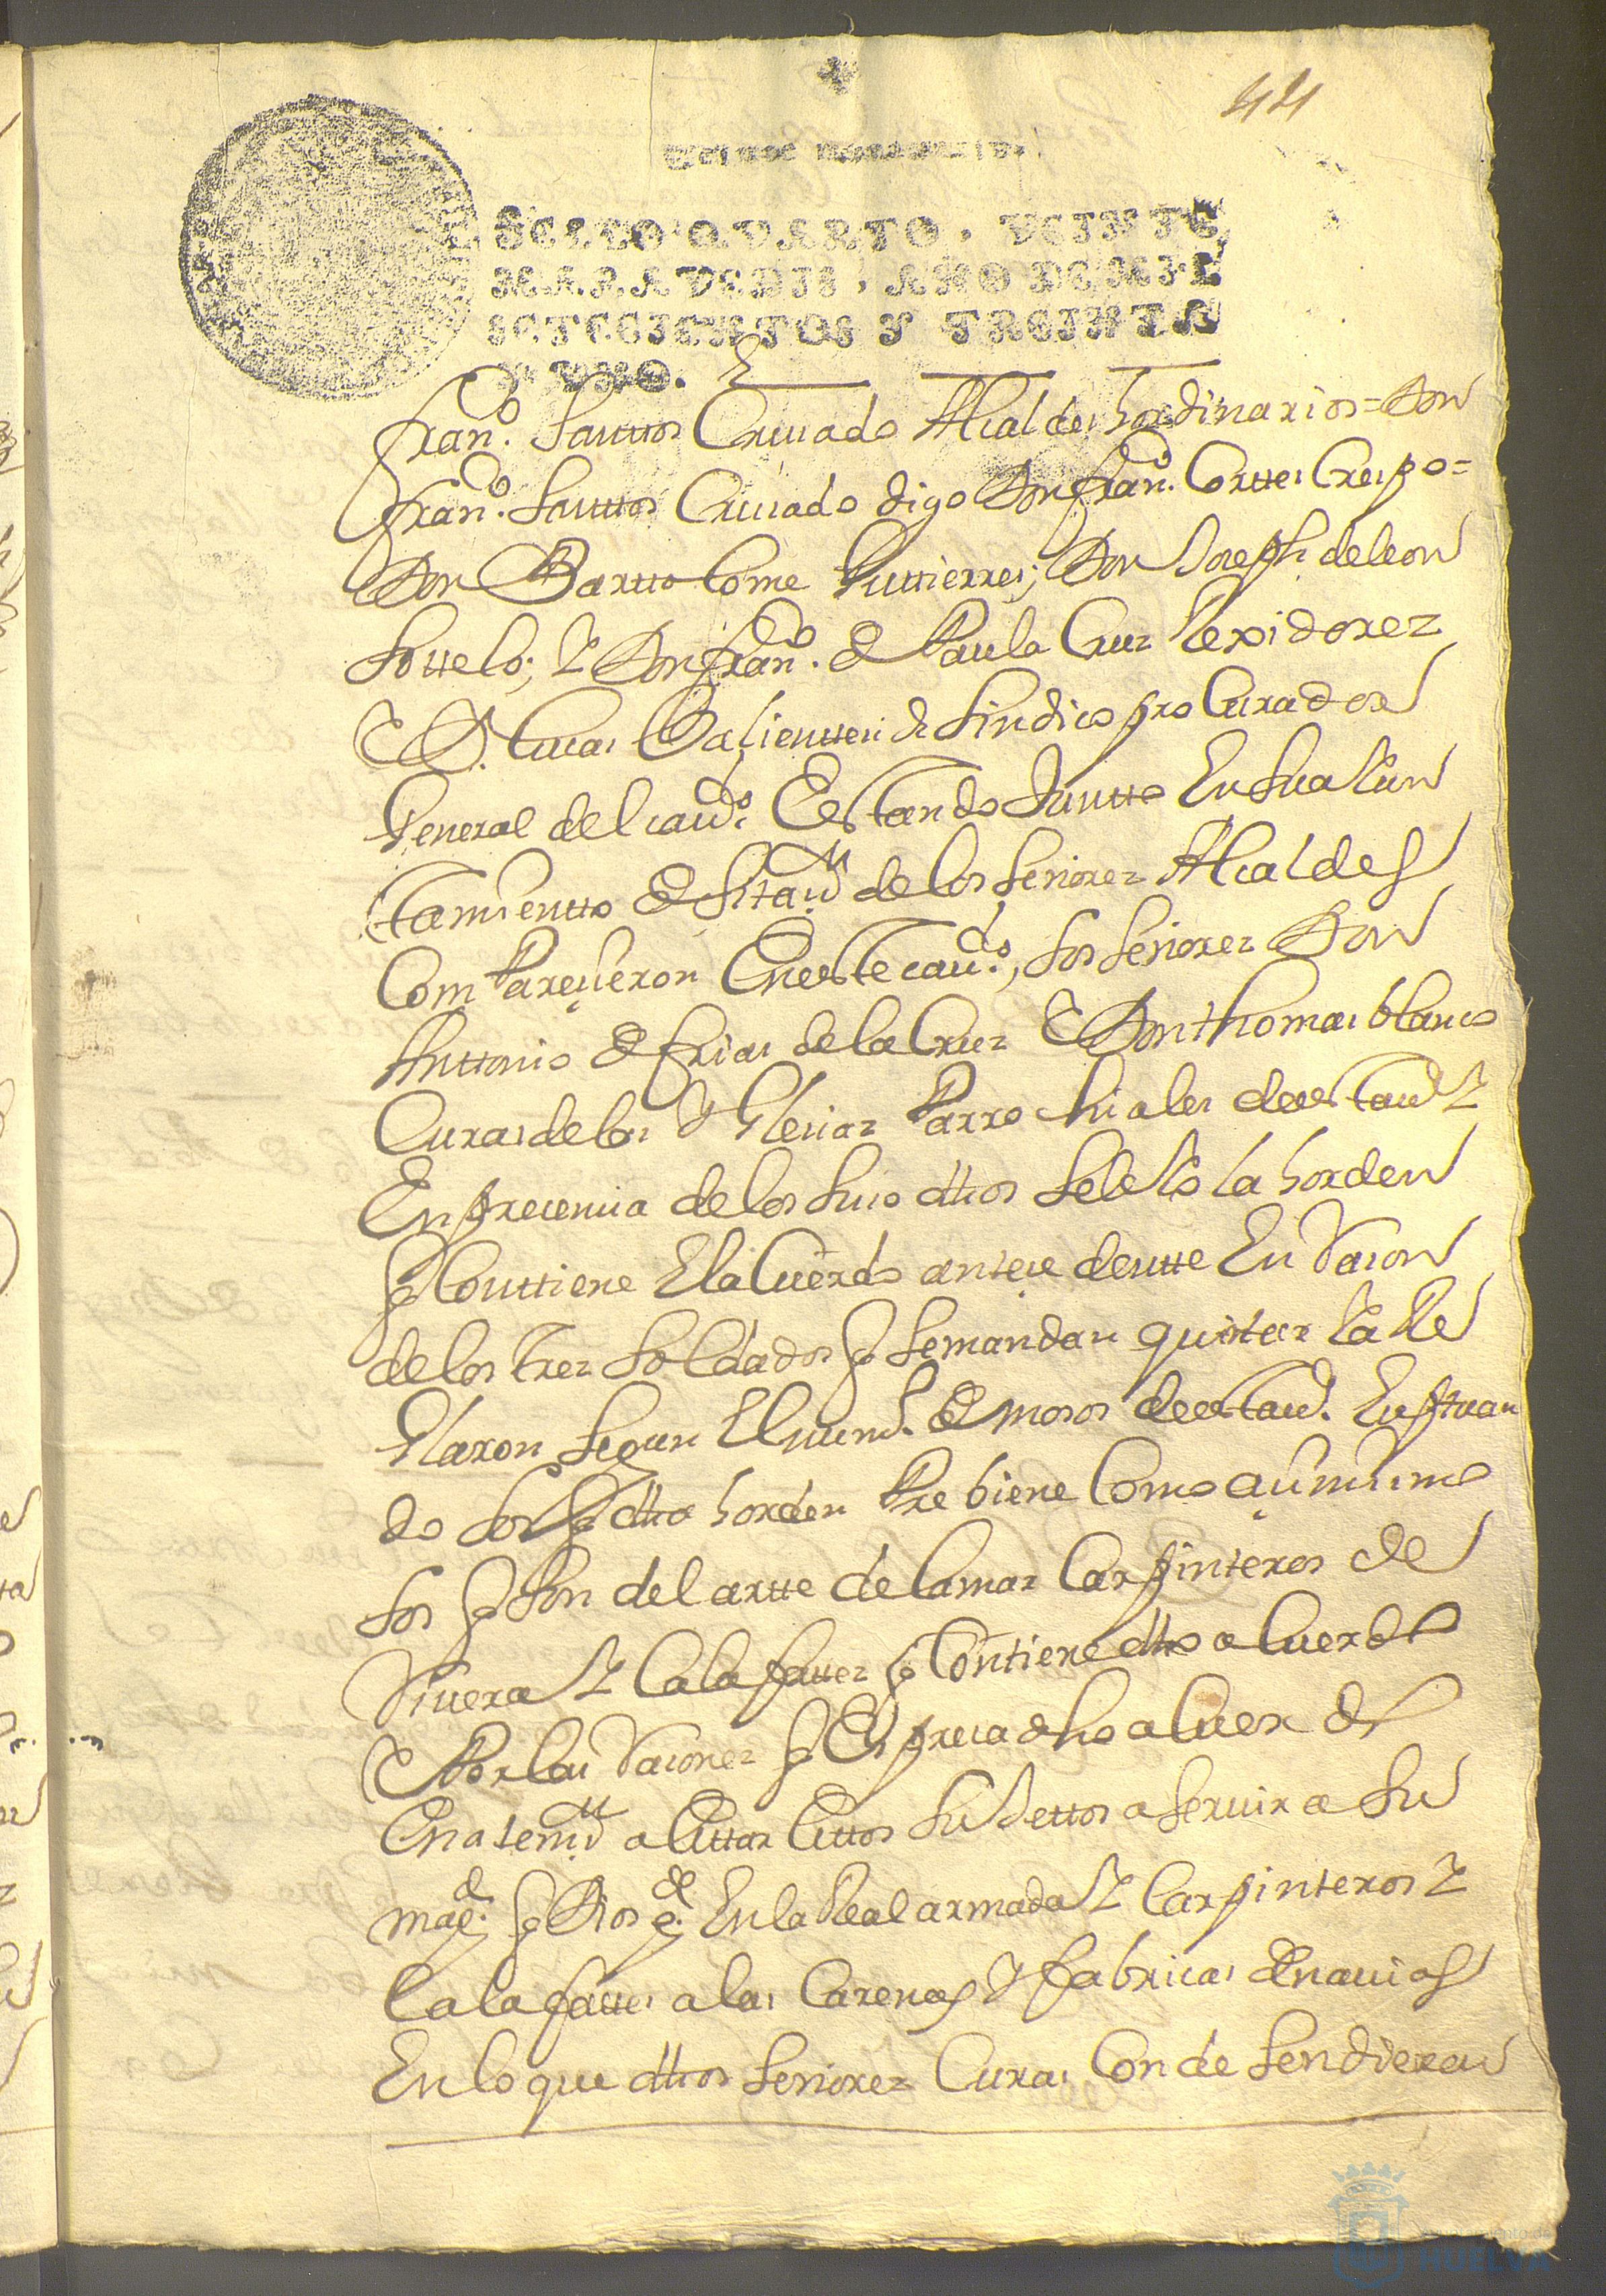 421
Veinte marauedis.
SELLO QVARTO, VEINTE
MARAVEDIS, AÑO DE MIL
SETECIENTOS Y TREINTA
Y VNO.
fran.co Santtos Criuado Alcaldes hordinarios = Don
fran.co Santtos Criuado digo Don fran.co Corttes Crespo =
Don Barttolome Guttierres; Don Joseph de leon
Sottelo; Y Don fran.co de Paula Cruz Rexidorez
E D. Lucas Balientte Sindico procurador
General del cau.do Estando Juntto En su aiun
tamientto de sitaz.on de los señorez Alcaldes
Comparezieron En este cau.do, los señorez Don
Anttonio de frias de la Cruz E Don thomas blanco
Curas de las Yglecias Parrochiales de esta v.a Y
En precencia de los suso dhos se leio la horden
q Conttiene El aCuerdo antecedentte En Racon
de los trez soldados q se mandan quintar Y a Re
glaron segun El num.o de mosos de esta v.a Exsptuan
do los q dha horden Prebiene Como asimismo
los q son del artte de la mar Carpinteros de
Riuera Y Calafattez q Contiene dho acuerdo
E Por las Raconez q Espreca dho acuerdo
En atenz.on a
 sujettos a seruir a su
mag.d q Dios g.de En la Real armada Y Carpinteros Y
Calafattes a las Carenas Y fabricas de nauios
En lo que dhos señorez Curas Condesendieron
HUELVA